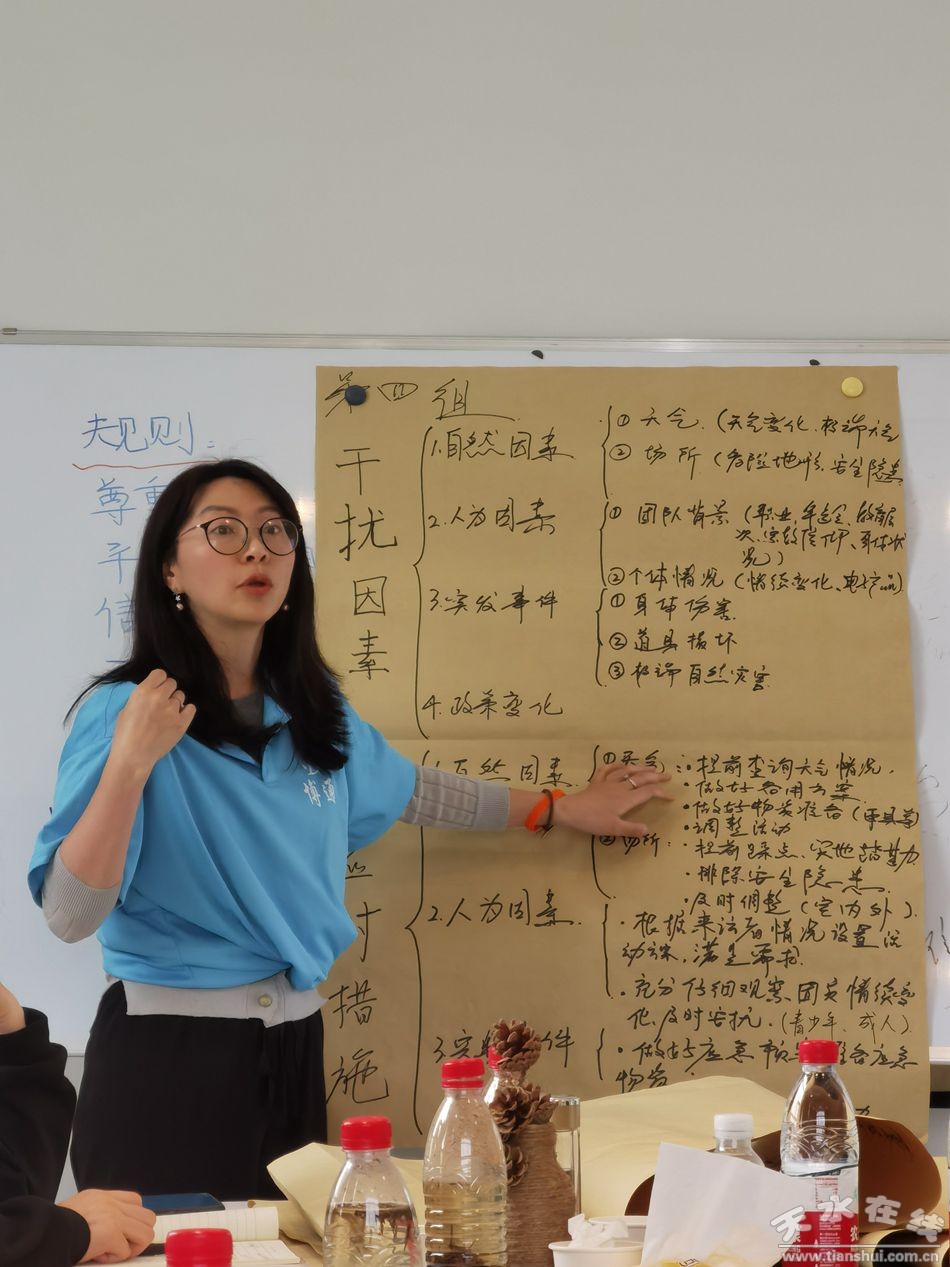 规则:
尊重
第四组
干扰因素
1.自然因素
① 天气（天气变化、极端天气
② 场所（危险地形、安全隐患
2.人为因素
① 团队背景（职业、年龄、教育层
次、宗教信仰、身体状
况）
② 个体情况（情绪变化、电子产品）
3.突发事件
① 身体伤害
② 道具损坏
③ 极端自然灾害
4.政策变化
应对措施
1.自然因素
① 天气：·提前查询天气情况
·做好备用方案
·做好物资准备（雨具等
·调整活动
② 场所：·提前踩点、实地踏勘
·排除安全隐患
·及时调整（室内外）.
2.人为因素
·根据来访者情况设置活
动方案，满足需求.
·充分仔细观察团员情绪变
化、及时安抚.（青少年、成人）
3.突发事件
·做好应急预案、准备应急
物资
博通
天水在线
www.tianshui.com.cn